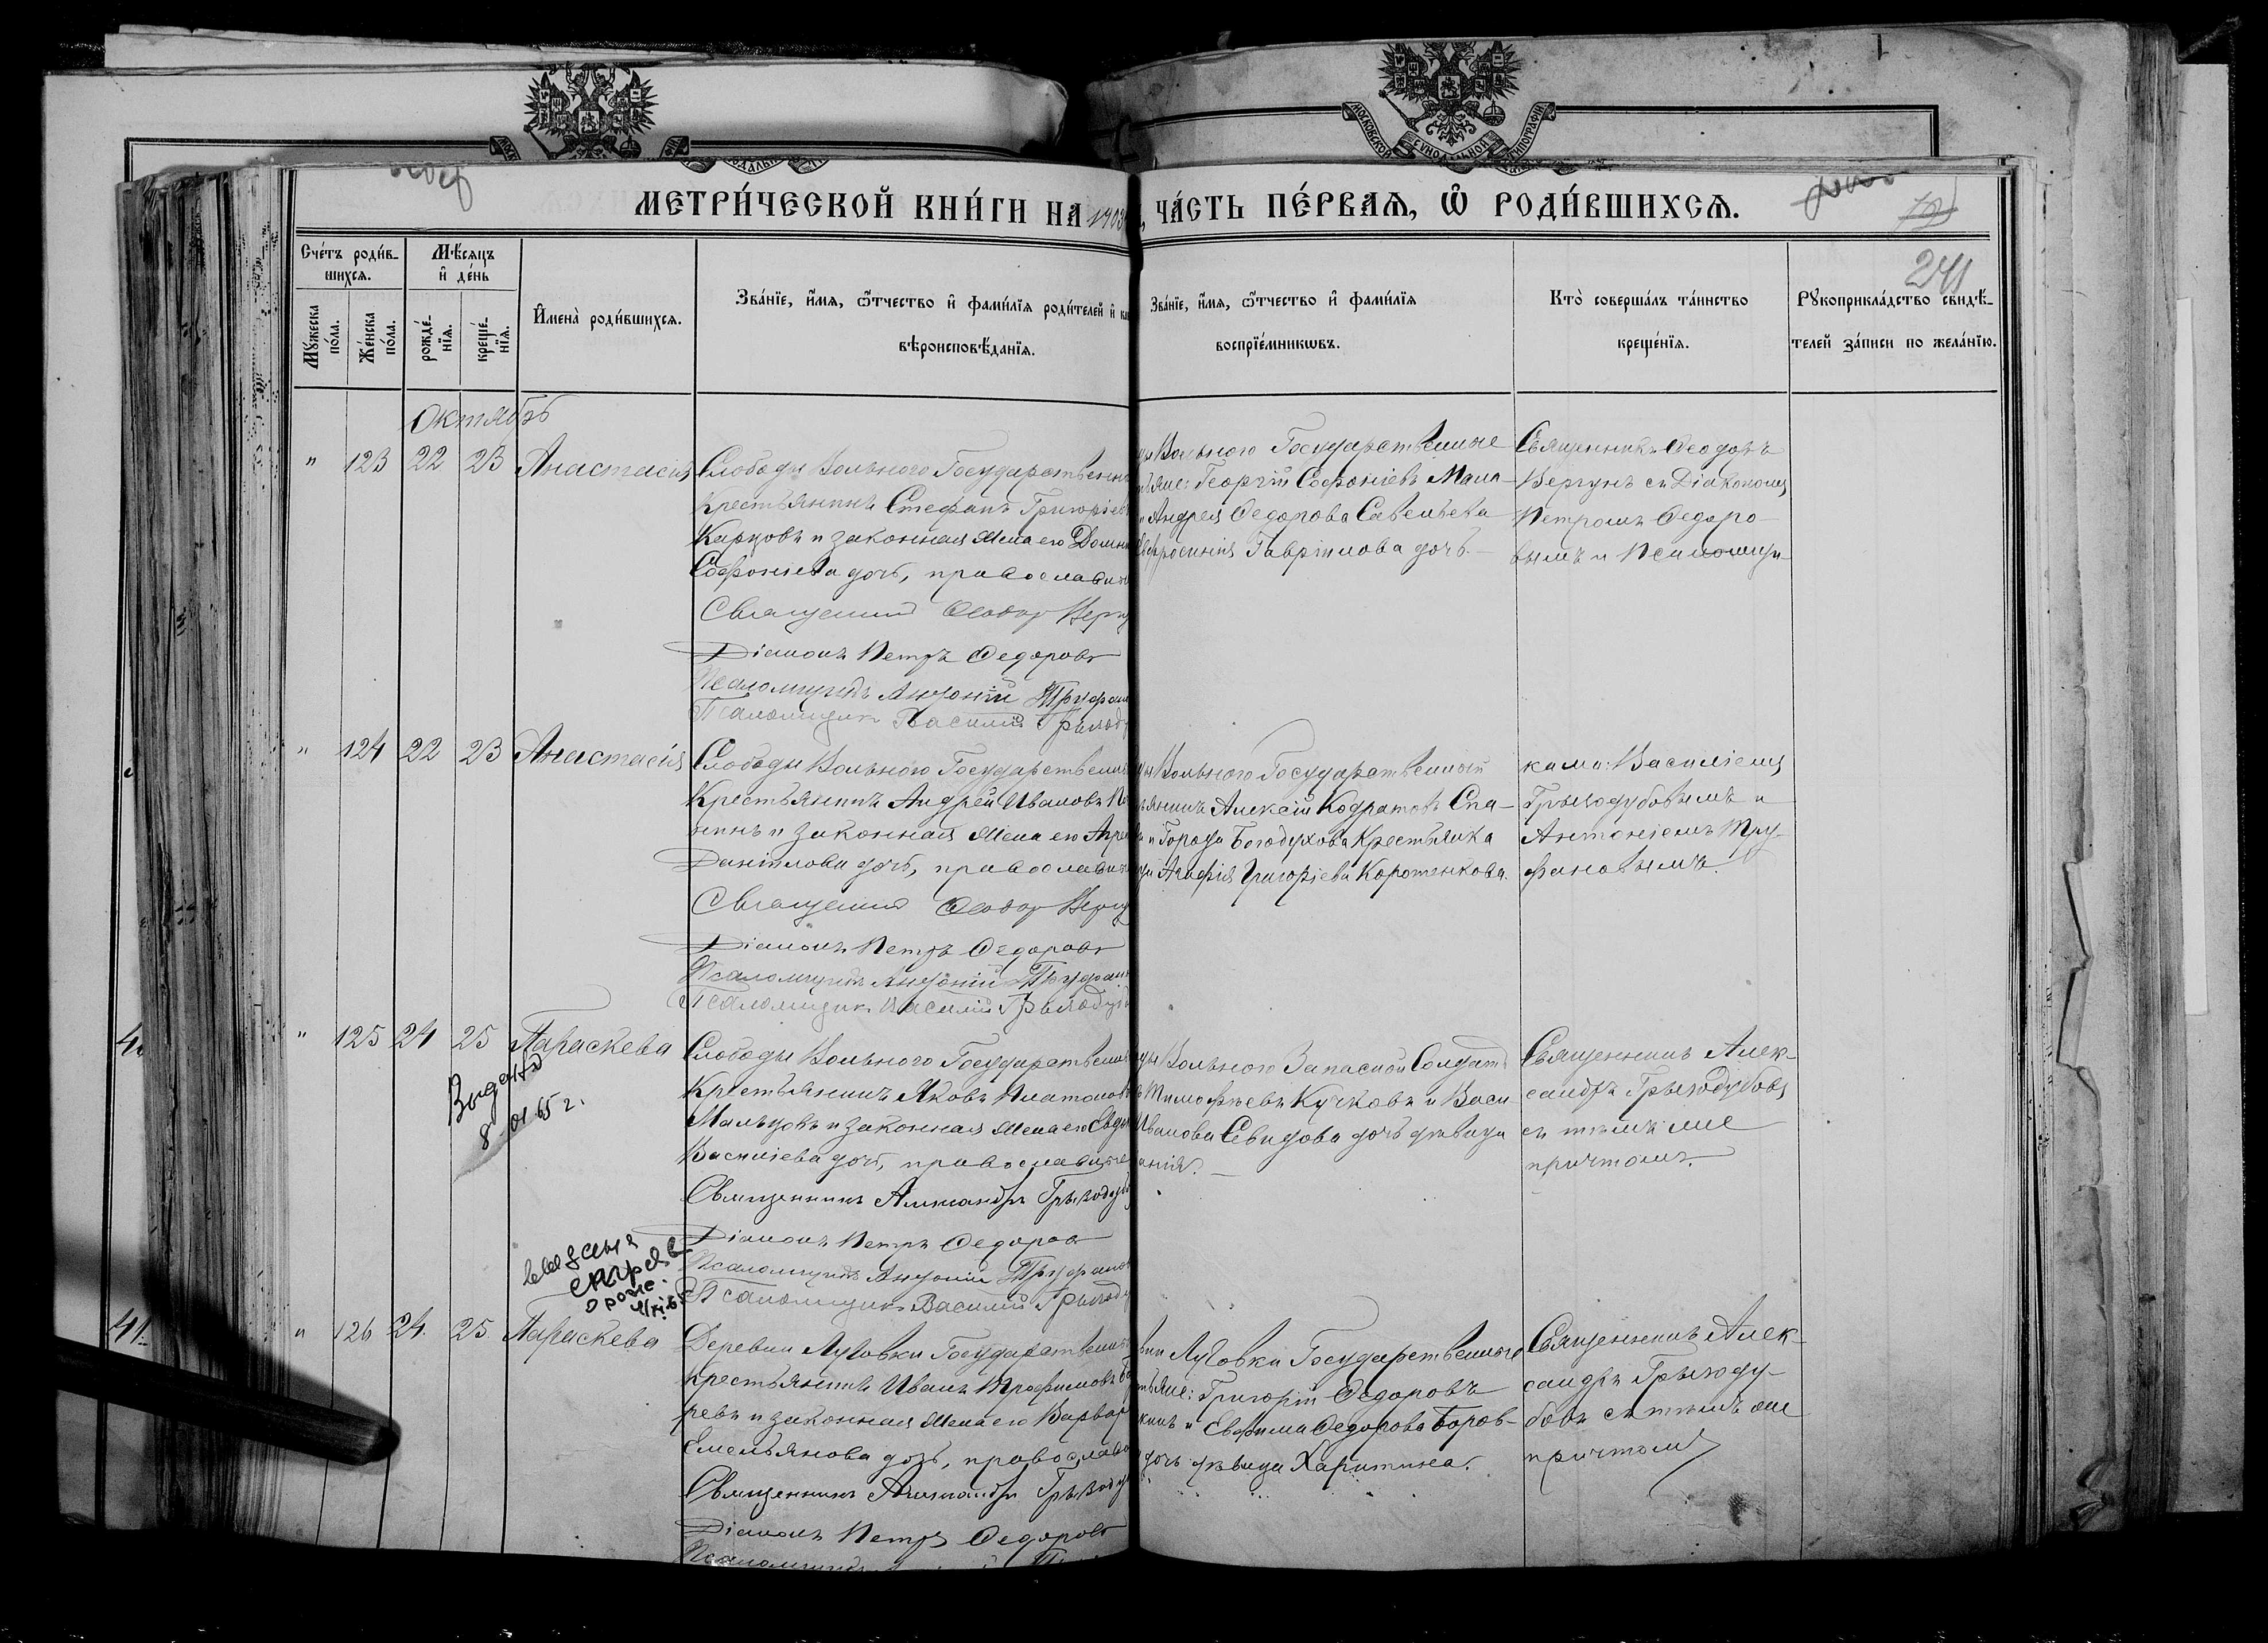 МЕТРИ́ЧЕСКОЙ КНИ́ГИ НА 1903
, ЧА́СТЬ ПЕ́РВАЯ, Ѡ҃ РОДИ́ВШИХСѦ.
241
Сче́тъ роди́в-
шихсѧ.
Мꙋ́жеска по́ла.
Же́нска по́ла.
Мѣ́сѧцъ
и҆ де́нь
рожде́-
нїѧ.
креще́-
нїѧ.
И҆мена̀ роди́вшихсѧ.
Зва́нїе, и҆́мѧ, ѻ҆́тчество и҆ фами́лїѧ роди́телей и҆
вѣроисповѣ́данїѧ.
Зва́нїе, и҆́мѧ, ѻ҆́тчество и҆ фами́лїѧ
воспрїе́мникѡвъ.
Кто̀ соверша́лъ та́инство
креще́нїѧ.
Рꙋкоприкла́дство свидѣ́-
телей за́писи по жела́нїю.
Октябрь
" 123 22 23 Анастасія
Слободы Вольного Государственн
Крестьянинъ Стефанъ Григоріев
Карцовъ и законная жена его Домн
Софоніева дочь, православн
Священник Феодор Вергу
Діаконъ Петръ Федоровъ
Псаломщикъ Антоній Труфан
Псаломщик Василій Грыгоду
Вольного Государственные
Георгій Софоніевъ Мали-
Андрея Федорова Савельева
Гавріилова дочь.
Священникъ Феодоръ
Вергунъ съ Діакономъ
Петромъ Федоро-
вымъ и Псаломщи-
" 124 22 23 Анастасія
Слободы Вольного Государственн
Крестьянинъ Андрей Ивановъ
и законная жена его
Даніилова дочь, православн
Священник Феодор Вергу
Діаконъ Петръ Федоровъ
Псаломщикъ Антоній Труфан
Псаломщик Василій
Вольного Государственный
Алексій Кодратовъ Спа-
и Города Богодухова Крестьянка
Агафія Григоріева Коротенкова.
ками: Василіемъ
и
Антоніемъ Тру-
фановымъ.
40 " 125 24 25 Параскева
Видано
8-01-65 г.
Слободы Вольного Государственн
Крестьянинъ Яковъ Платонов
Мальцовъ и законная жена его Евдо
Василіева дочь, православные
Священникъ Александръ
Діаконъ Петръ Федоров
Псаломщикъ Антоній Труфанов
Псаломщикъ Василій
Вольного Запасной Солдатъ
Тимофѣевъ Кучковъ и Васи
Иванова Севидова дочь дѣвица
Священникъ Алек-
сандръ
съ тѣмъ же
причтомъ.
41 " 126 24 25 Параскева
Деревни Луговки Государственн
Крестьянинъ Иванъ Трофимовъ
ревъ и законная жена его Варвар
Емельянова дочь, православ
Священникъ Александръ
Діаконъ Петръ Федоровъ
Луговки Государственные
Григорій Федоровъ
и Евфима Федорова Боров-
дочь дѣвица Харитина.
Священникъ Алек-
сандръ
бовъ съ тѣмъ же
причтомъ